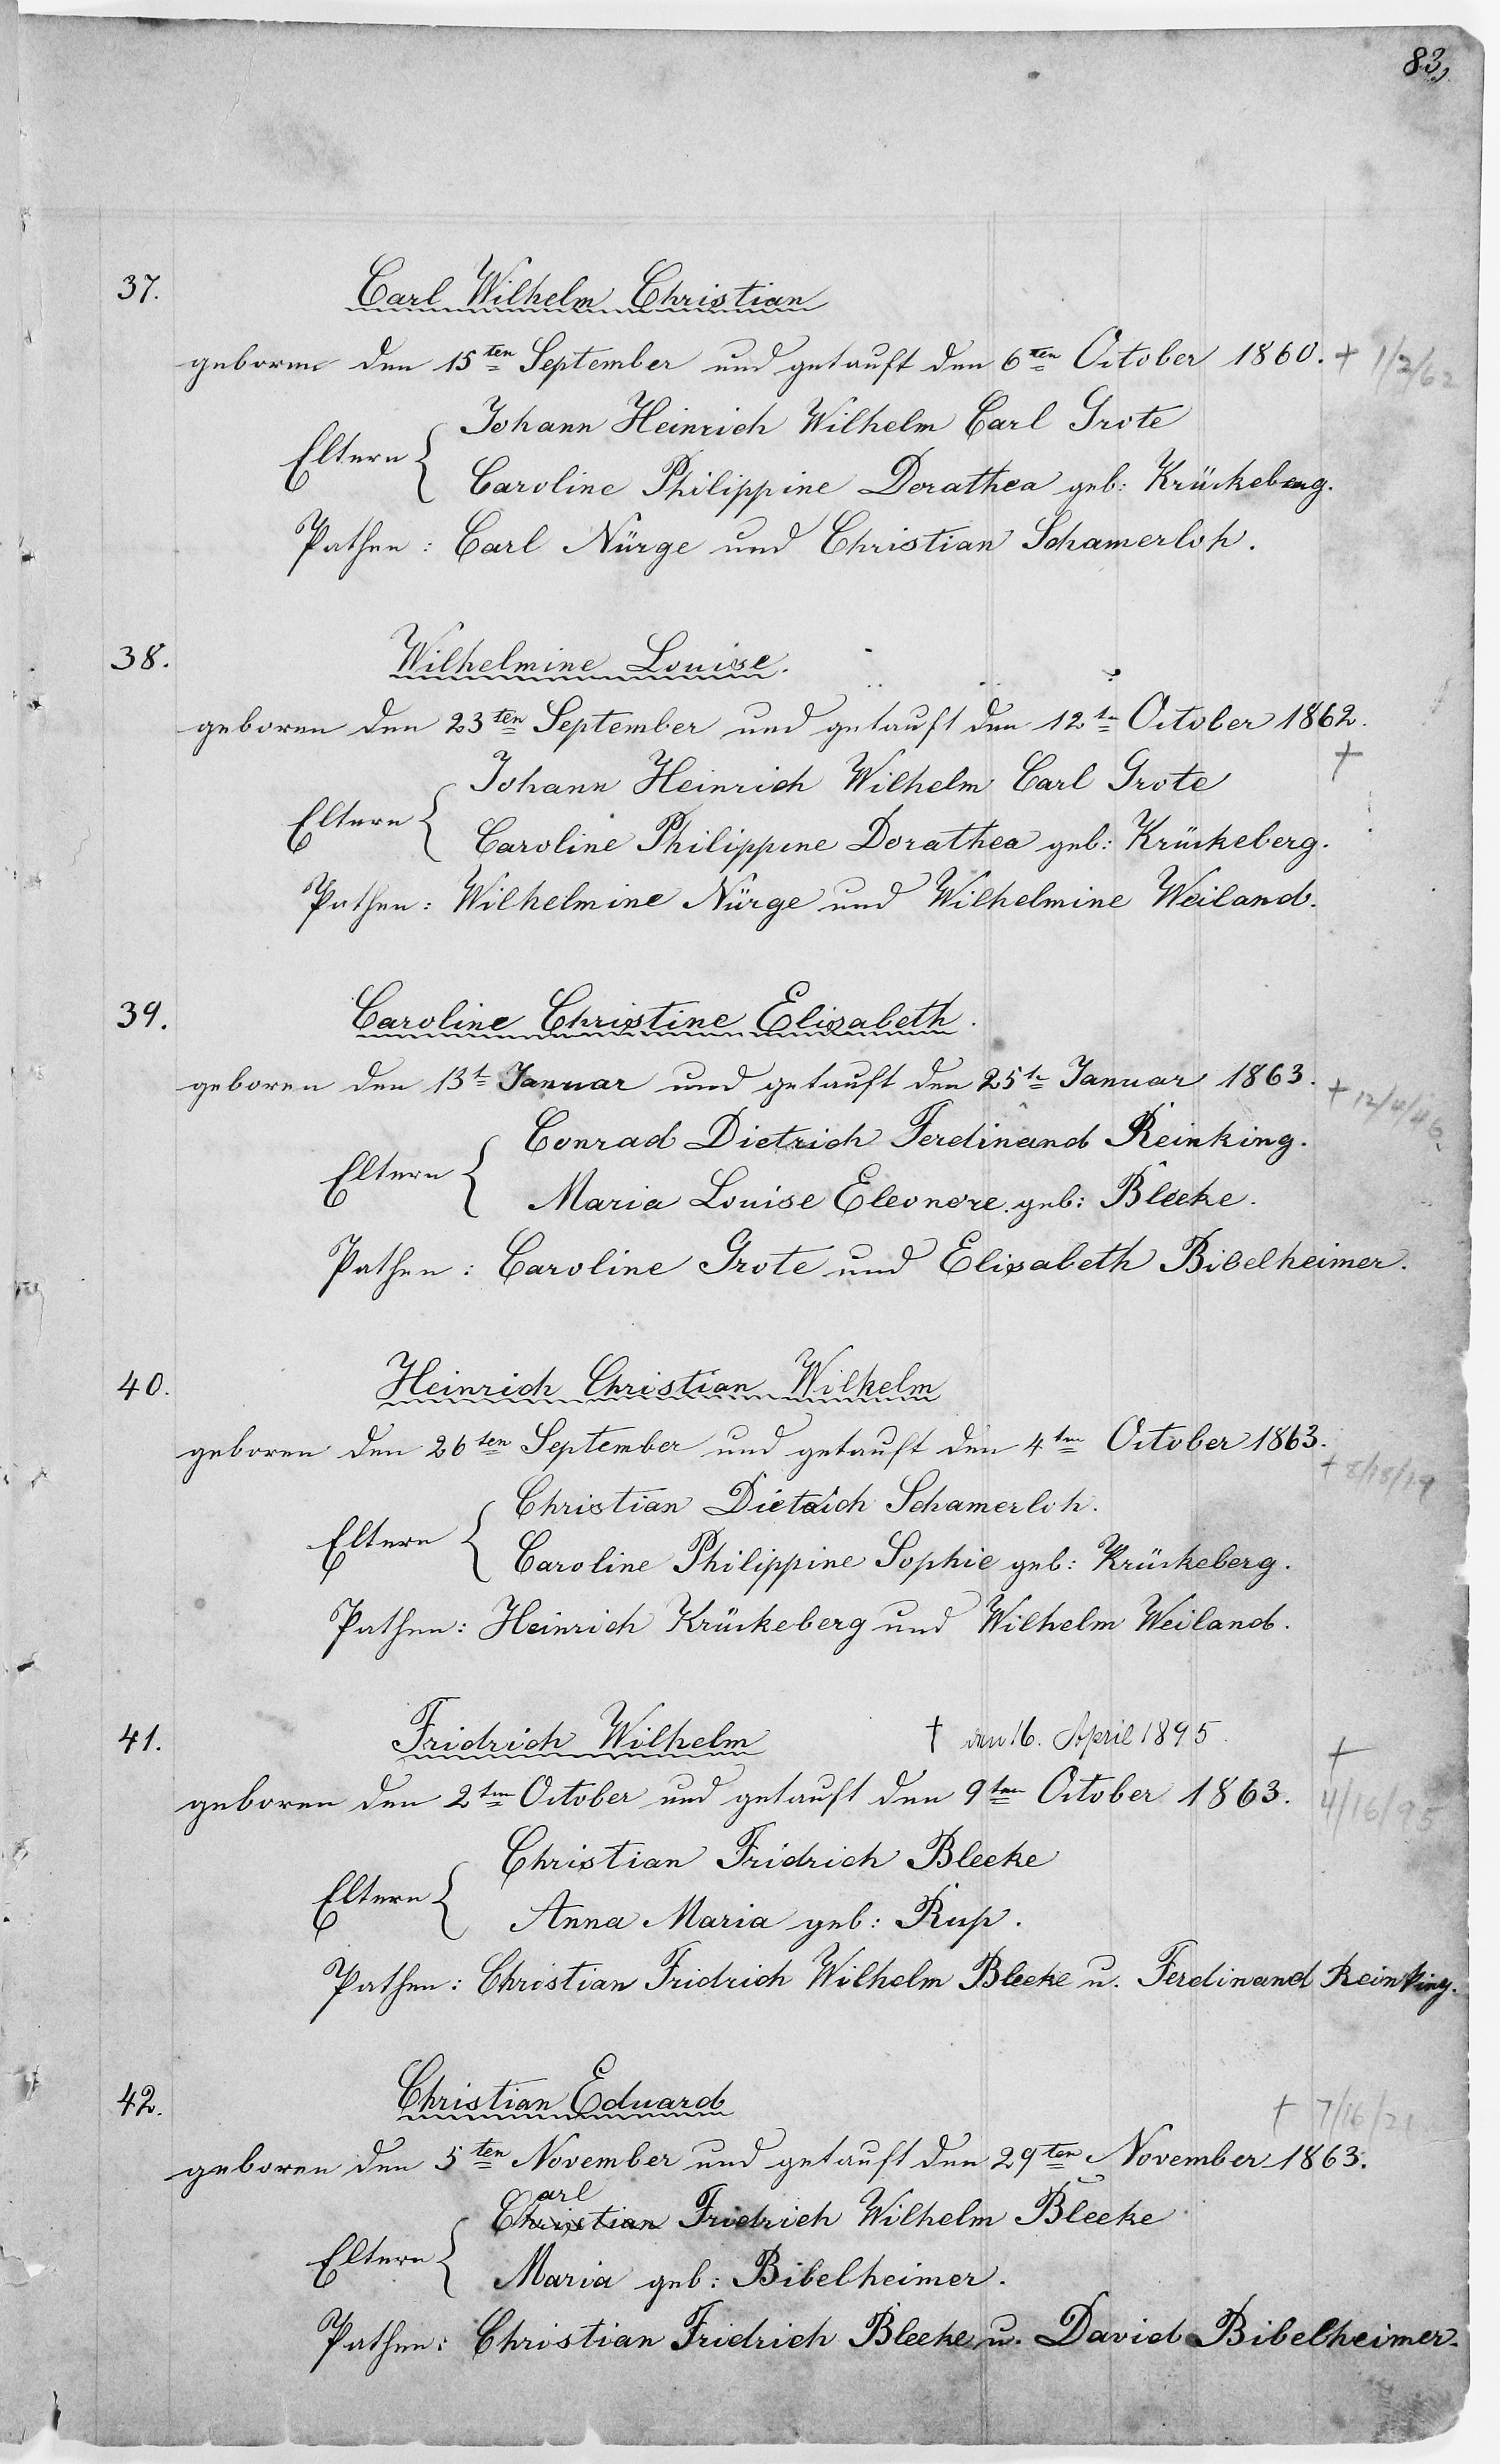 83,
37. Carl Wilhelm Christian
geboren den 15ten September und getauft den 6ten October 1860. + 1/2/62
Johann Heinrich Wilhelm Carl Grote
Eltern {
Caroline Philippine Dorathea geb: Krückeberg.
Pathen: Carl Nürge und Christian Schamerloh.
38. Wilhelmine Louise.
geboren den 23ten September und getauft den 12ten October 1862.
+
Johann Heinrich Wilhelm Carl Grote
Eltern {
Caroline Philippine Dorathea geb: Krückeberg.
Pathen: Wilhelmine Nürge und Wilhelmine Weiland.
39. Caroline Christine Elisabeth.
geboren den 13t Januar und getauft den 25t Januar 1863. + 12/4/46
Conrad Dietrich Ferdinand Reinking.
Eltern {
Maria Louise Eleonore. geb: Bleeke.
Pathen: Caroline Grote und Elisabeth Bibelheimer.
40. Heinrich Christian Wilhelm
geboren den 26ten September und getauft den 4ten October 1863.
+ 8/18/19
Christian Dietrich Schamerloh.
Eltern {
Caroline Philippine Sophie geb: Krückeberg.
Pathen: Heinrich Krückeberg und Wilhelm Weiland.
41. Fridrich Wilhelm † den 16. April 1895.
+
geboren den 2ten October und getauft den 9ten October 1863. 4/16/95
Christian Fridrich Bleeke
Eltern {
Anna Maria geb: Rup.
Pathen: Christian Fridrich Wilhelm Bleeke u. Ferdinand Reinking.
42. Christian Eduard
+ 7/16/21
geboren den 5ten November und getauft den 29ten November 1863.
arl
Christian Fridrich Wilhelm Bleeke
Eltern {
Maria geb: Bibelheimer.
Pathen: Christian Fridrich Bleeke u. David Bibelheimer.